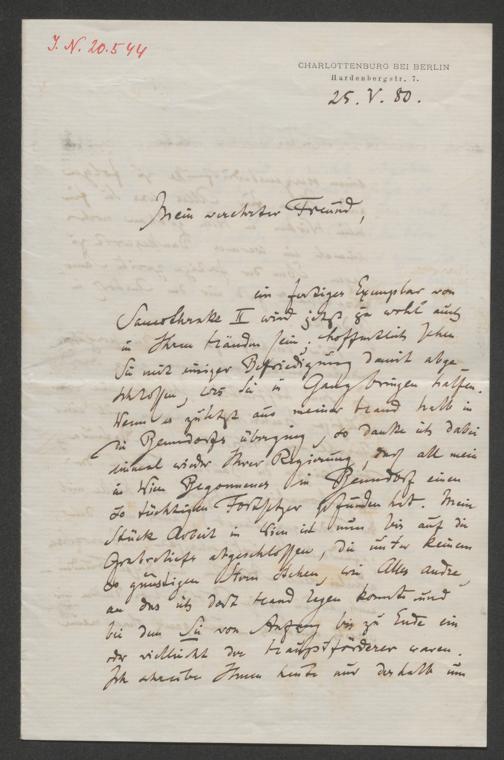 I. N. 20.544
CHARLOTTENBURG BEI BERLIN
Hardenbergstr. 7.
25. V. 80.
Mein verehrter Freund,
ein fertiges Exemplar von
Samothrake II wird jetzt ja wohl auch
in Ihren Händen sein; hoffentlich sehen
Sie mit einiger Befriedigung damit abge-
schlossen, was Sie in Gang bringen halfen.
Wenn es zuletzt aus meiner Hand halb in
die Benndorfs überging, so danke ich dabei
einmal wieder Ihrer Regierung, daß all mein
in Wien Begonnenes in Benndorf einen
so tüchtigen Fortsetzer gefunden hat. Mein
Stück Arbeit in Wien ist nun bis auf die
Grabreliefs abgeschlossen, die unter keinem
so günstigen Stern stehen, wie Alles andre,
an das ich dort Hand legen konnte und
bei dem Sie von Anfang bis zu Ende ein
oder vielleicht der Hauptförderer waren.
Ich schreibe Ihnen heute nur deshalb um